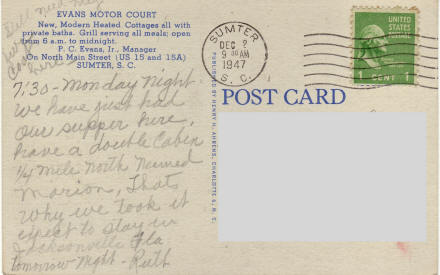 EVANS MOTOR COURT
New, Modern Heated Cottages all with
private baths. Grill serving all meals; open
from 6 a.m. to midnight.
P. C. Evans, Jr., Manager
On North Main Street (US 15 and 15A)
SUMTER, S. C.
7:30 - Monday Night
We have just had
our supper here,
have a double Cabin
1/4 mile North named
Marion, Thats
why we took it
expect to stay in
Jacksonville Fla.
tomorrow night - Ruth
PUBLISHED BY HENRY H. AHRENS, CHARLOTTE 6, N. C.
POST CARD
SUMTER
DEC 2
9 30 AM
1947
S. C.
UNITED
STATES
POSTAGE
1 CENT 1